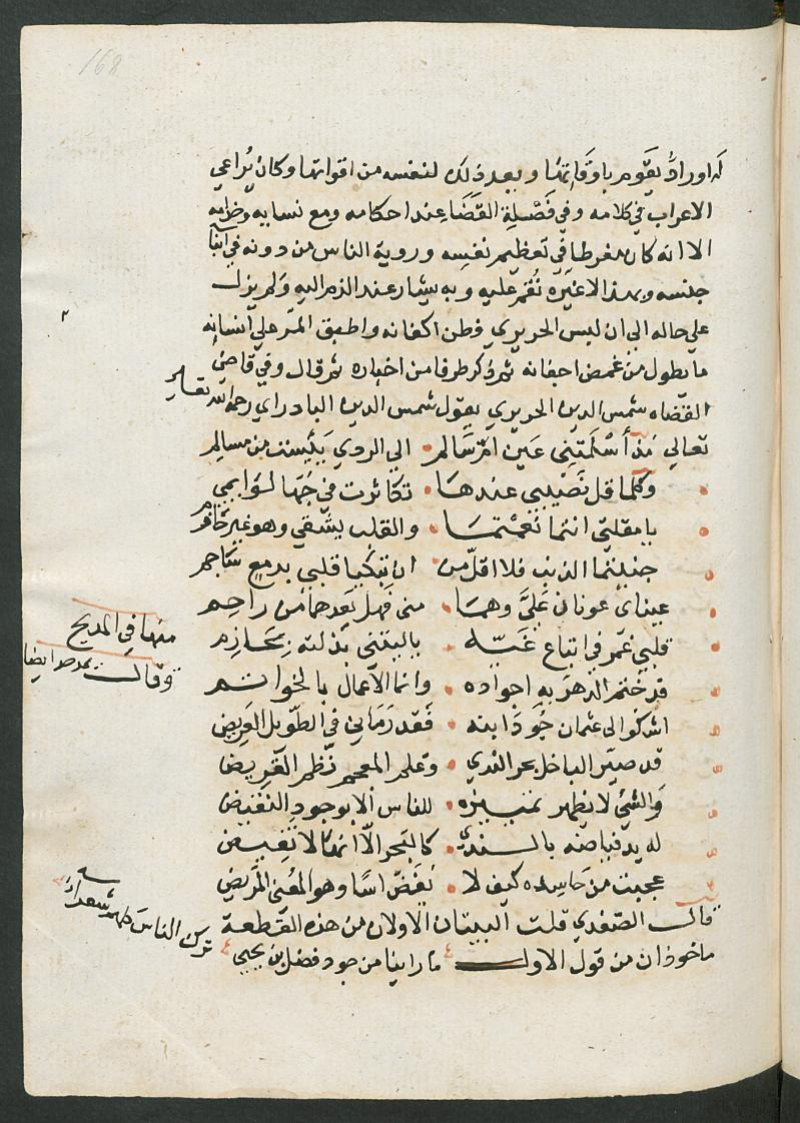 168
له اوراد يقوم باوقاتها وبعد ذلك لنفسه من اقواتها وكان يراعي
الاعراب في كلامه وفي فصله القضا عند احكامه ومع نسايه وخدامه
الا انه كان مفرطا في تعظيم نفسه وروية الناس من دونه في ابنا
جنسه وبهذا لا غيره نُقم عليه وبه يشار عند الذم اليه ولم يزل
على حاله الى ان لبس الحريري قطن اكفانه واطبق المر على انسانه
ما يطول من غمض اجفانه ثم ذكر طرفا من اخباره ثم قال وفي قاضي
القضاه شمس الدين الحريري يقول شمس الدين البادراي رحمه الله تعالى
تعالى مذ أسلمتني عين ام سالم • الى الردي يئيست من مسالم
• وكلما قل نصيبي عندها • تكاثرت في حبها لوايمي
• يا مقلتي انتما نعمتما • والقلب يشقي وهو غير
جنيتما الذنب فلا اقل من • ان تبكيا قلبي بدمع ساجم
• عيناي عونان عليَّ وهما • مني فهل بعدهما من راحم
• قلبي غر في اتباع غيه • ياليتني بذلته بحازم
منها في المديح
• قد ختم الدهر به اجواده • وانما الاعمال بالخواتم
وقال يمدحه ايضا
• اشكو الى عثمان جود ابنه • فقد رماني في الطويل العريض
• قد صير الباخل بحر الندي • وعلم المعجم نظم القريض
• والشي لا يظهر تمييزه • للناس الا بوجود النقيض
• له يد فياضة بالندي • كالبحر الا انها لا تغيض
• عجبت من حاسده كيف لا • اسا وهو المعنى المريض
قال الصفدي قلت البيتان الاولان من هذه القطعة
ماخوذان من قول الاول ما راينا من جود فضل بن يحيي
ترك الناس كلهم شعراء